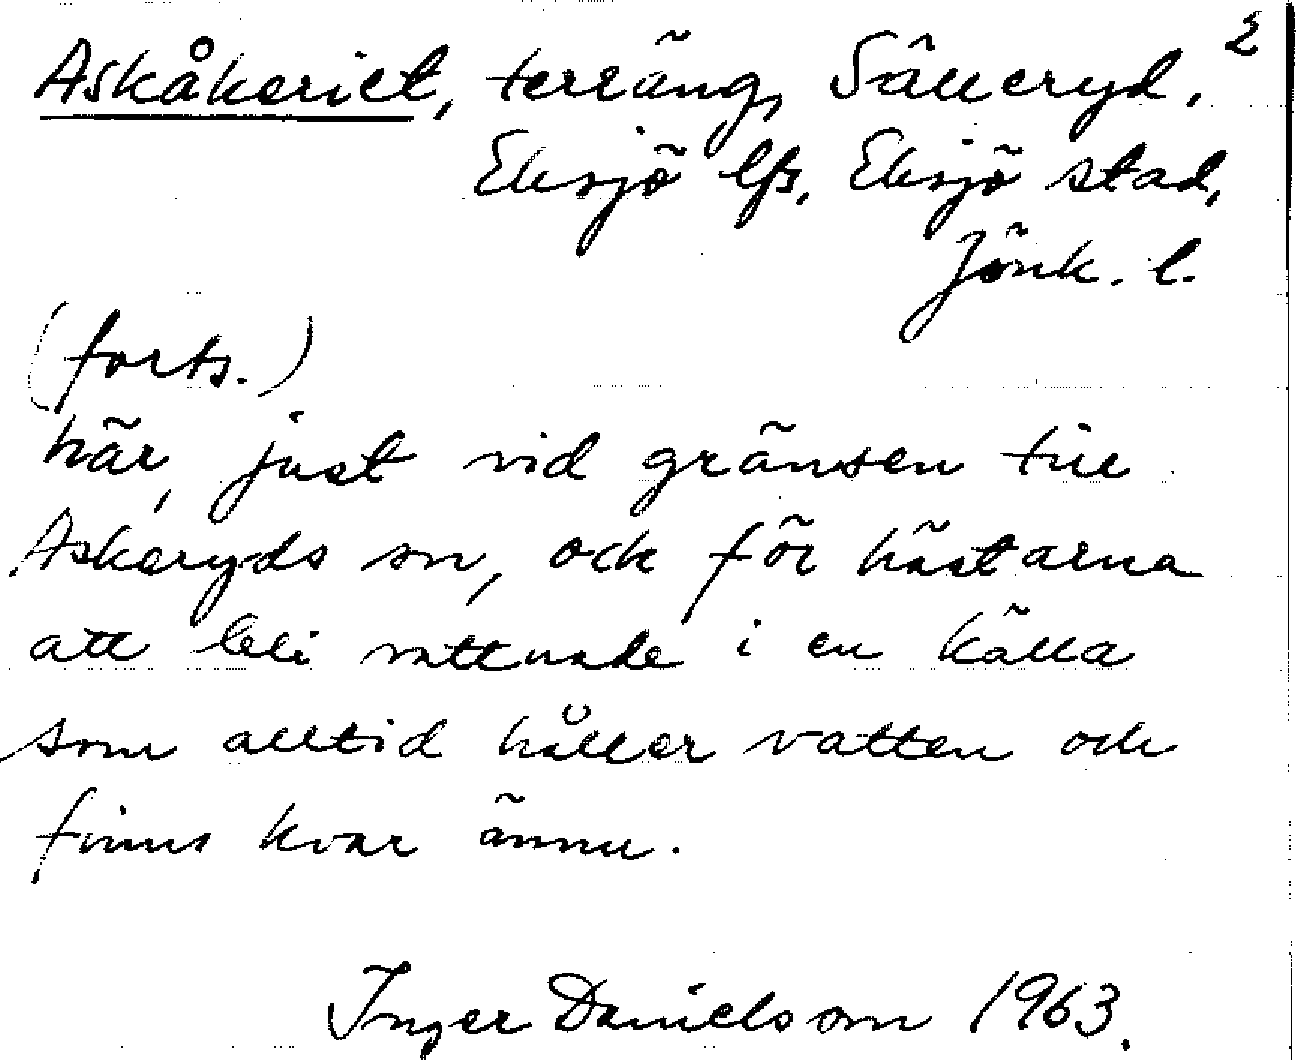 2
Askåkeriet, terräng, Sälleryd,
Eksjö lfs, Eksjö stad,
Jönk. l.
(forts.)
här, just vid gränsen till
Askeryds sn, och för hästarna
att bli vattnade i en källa
som alltid håller vatten och
finns kvar ännu.
Inger Danielsson 1963.